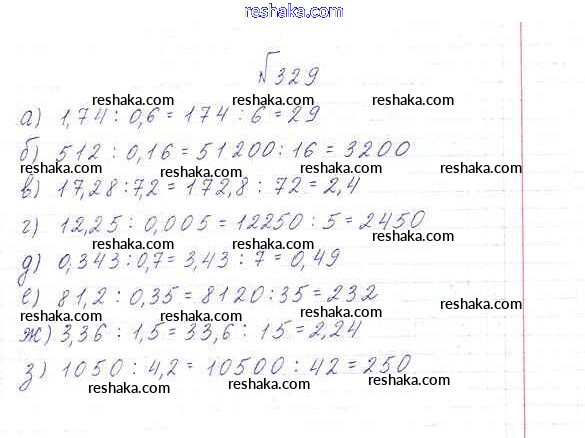 reshaka.com
№ 329
reshaka.com reshaka.com
а) 1,74 : 0,6 = 174 : 6 = 29
reshaka.com reshaka.com
б) 512 : 0,16 = 51200 : 16 = 3200
reshaka.com reshaka.com reshaka.com
в) 17,28 : 7,2 = 172,8 : 72 = 2,4
г) 12,25 : 0,005 = 12250 : 5 = 2450
reshaka.com reshaka.com reshaka.com
д) 0,343 : 0,7 = 3,43 : 7 = 0,49
е) 81,2 : 0,35 = 8120 : 35 = 232
reshaka.com reshaka.com reshaka.com
ж) 3,36 : 1,5 = 33,6 : 15 = 2,24
з) 1050 : 4,2 = 10500 : 42 = 250
reshaka.com reshaka.com reshaka.com